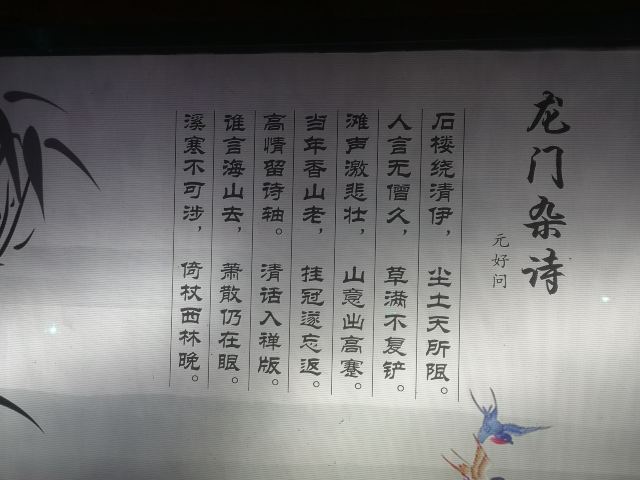 龙门杂诗
元好问
石楼绕清伊，尘土天所阻。
人言无僧久，草满不复铲。
滩声激悲壮，山意出高蹇。
当年香山老，挂冠遂忘返。
高情留诗轴。清话入禅版。
谁言海山去，萧散仍在眼。
溪寒不可涉，倚杖西林晚。